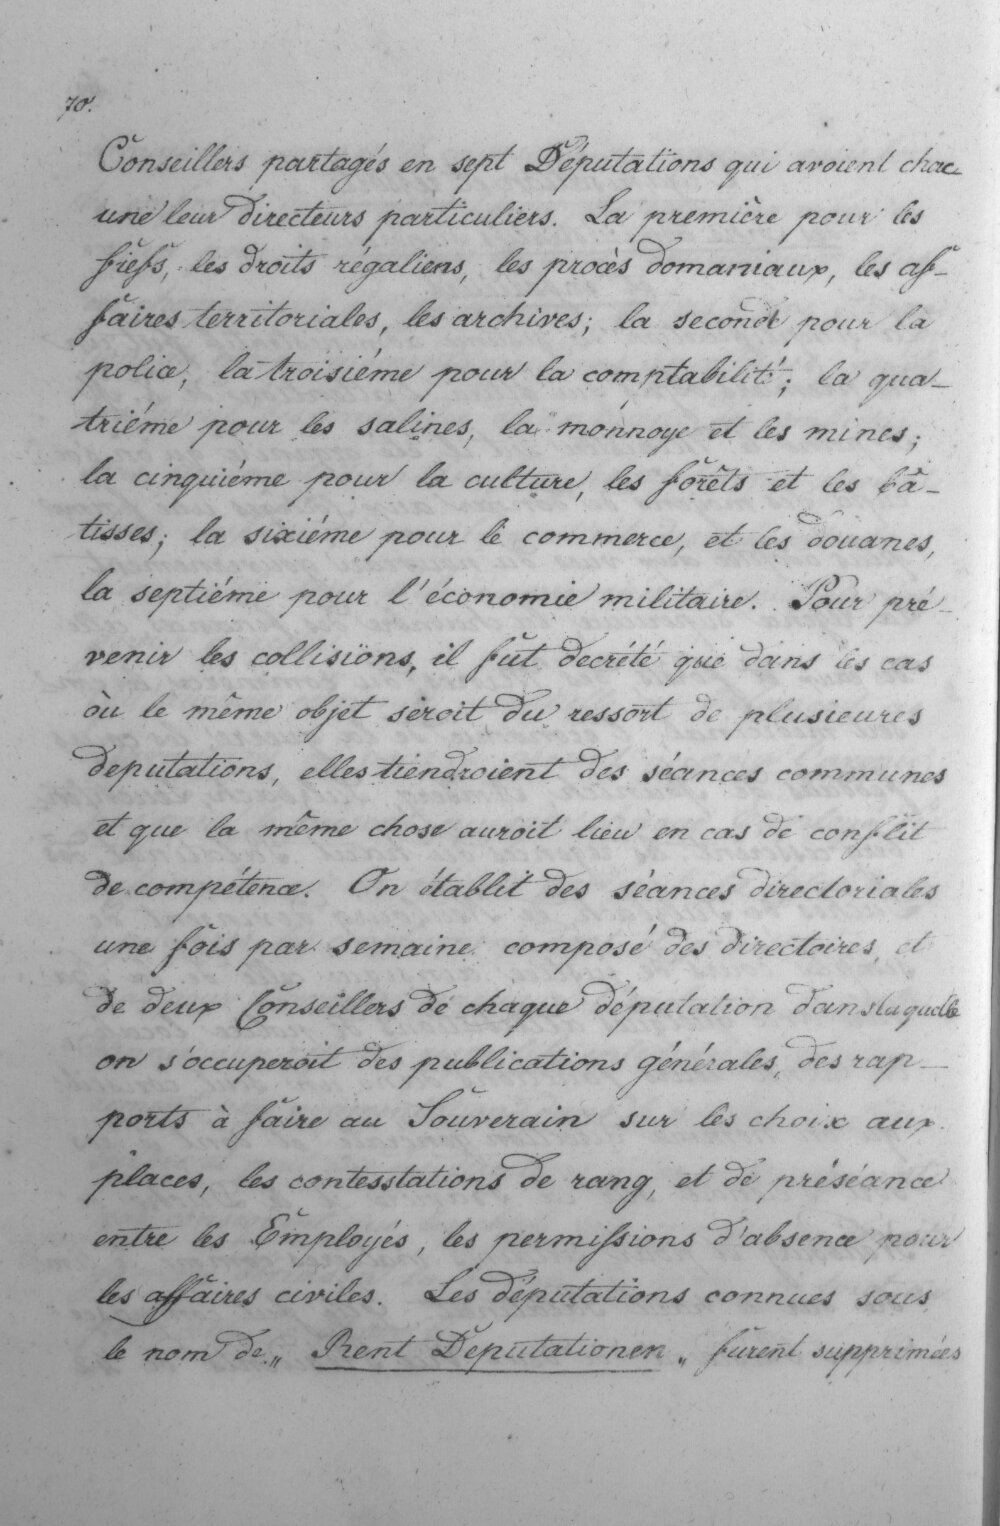 70.
Conseillers partagés en sept Députations qui avoient chac-
une leur directeurs particuliers. La première pour les
fiefs, les droits régaliens, les procès domaniaux, les af-
faires territoriales, les archives; la seconde pour la
police, la troisiéme pour la comptabilité; la qua-
triéme pour les salines, la monnoye et les mines;
la cinquiéme pour la culture, les forêts et les bâ-
tisses; la sixiéme pour le commerce, et les douanes,
la septiéme pour l'économie militaire. Pour pré-
venir les collisions, il fut decrété que dans les cas
où le même objet seroit du ressort de plusieures
deputations, elles tiendroient des séances communes
et que la même chose auroit lieu en cas de conflit
de compétence. On établit des séances directoriales
une fois par semaine composé des directoires, et
de deux Conseillers de chaque députation dans laquelle
on s'occuperoit des publications générales, des rap-
ports à faire au Souverain sur les choix aux
places, les contesstations de rang, et de préséance
entre les Employés, les permissions d'absence pour
les affaires civiles. Les députations connues sous
le nom de „ Rent Deputationen „ furent supprimées